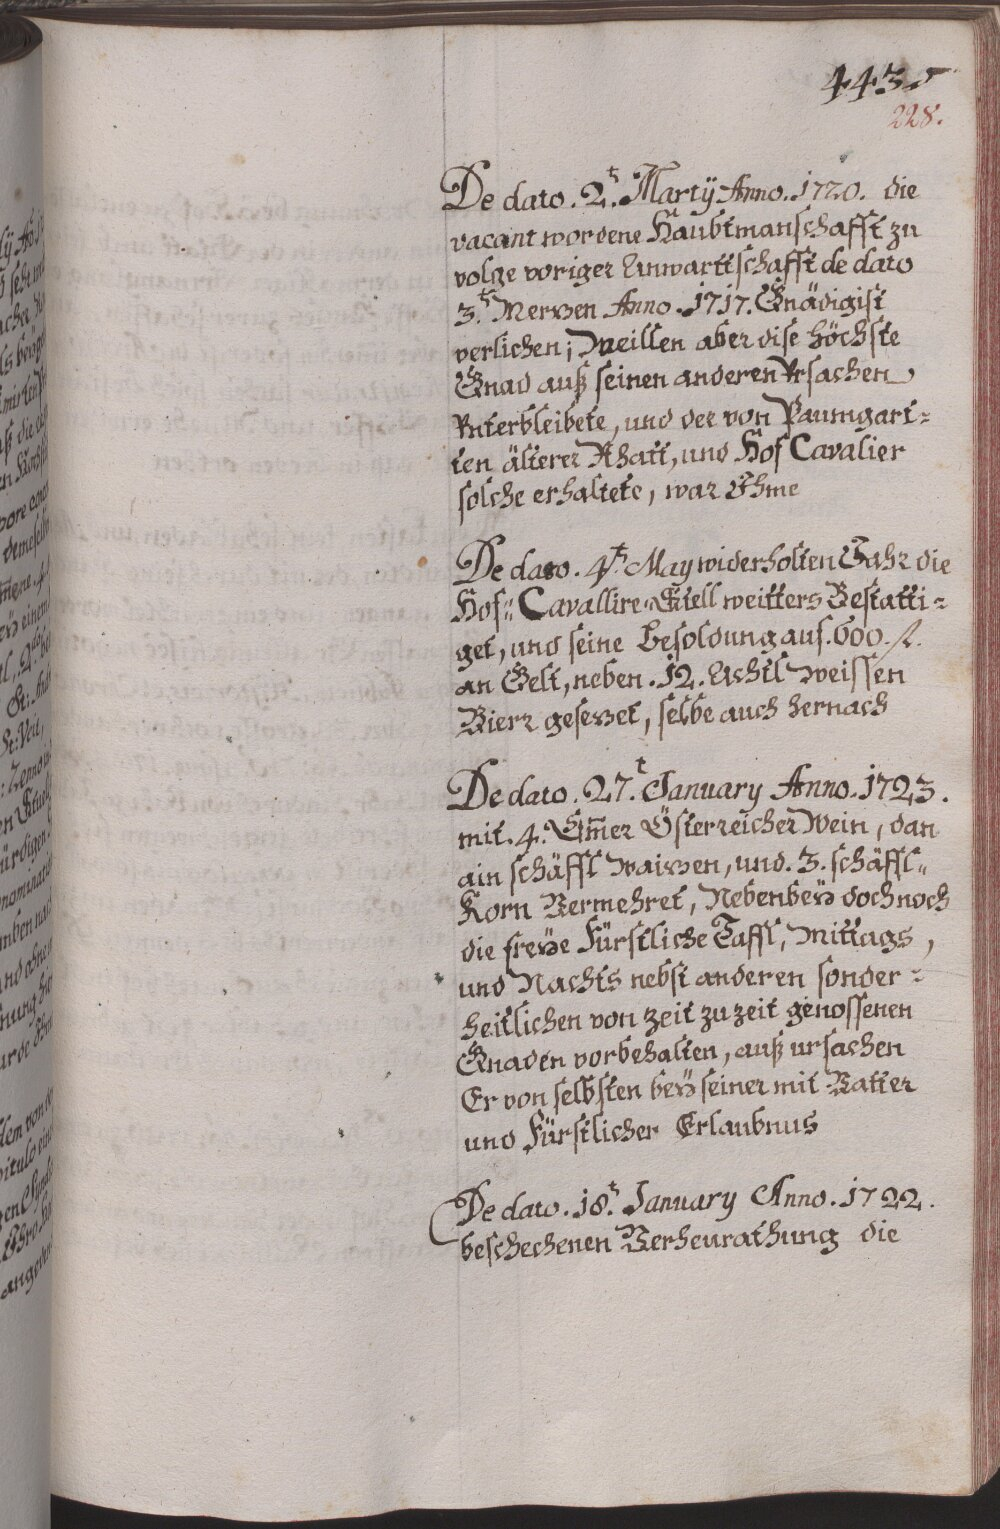 443
228.
De dato. 2.t Martÿ Anno. 1720. die
vacant wordene Haubtmanschafft zu
volge voriger Anwarttschafft de dato
3.t Merzen Anno. 1717. Gnädigist
verlichen; Weillen aber dise höchste
Gnad auß seinen anderen Ursachen
Unterbleibete, und der von Paumgart=
ten älterer Rhatt, und Hof Cavalier
solche erhaltete, war Ihme
De dato. 4.t May widerholten Jahr die
Hof= Cavallire=Stell weitters Bestatti=
get, und seine Besoldung auf. 600. fl.
an Gelt, neben. 12. Achtl Weissen
Bierr gesezet, selbe auch hernach
De dato. 27.t January Anno. 1723.
mit. 4. Em̅er Österreicher Wein, dan
ain schäffl Waizen, und. 3. schäffl=
Korn Vermehret, Nebenbeÿ doch noch
die freÿe Fürstliche Taffl, Mittags,
und Nachts nebst anderen sonder=
heitlichen von zeit zu zeit genossenen
Gnaden vorbehalten, auß ursachen
Er von selbsten beÿ seiner mit Vatter
und Fürstlicher Erlaubnus
De dato. 18.t January Anno. 1722.
beschechenen Verheurathung die